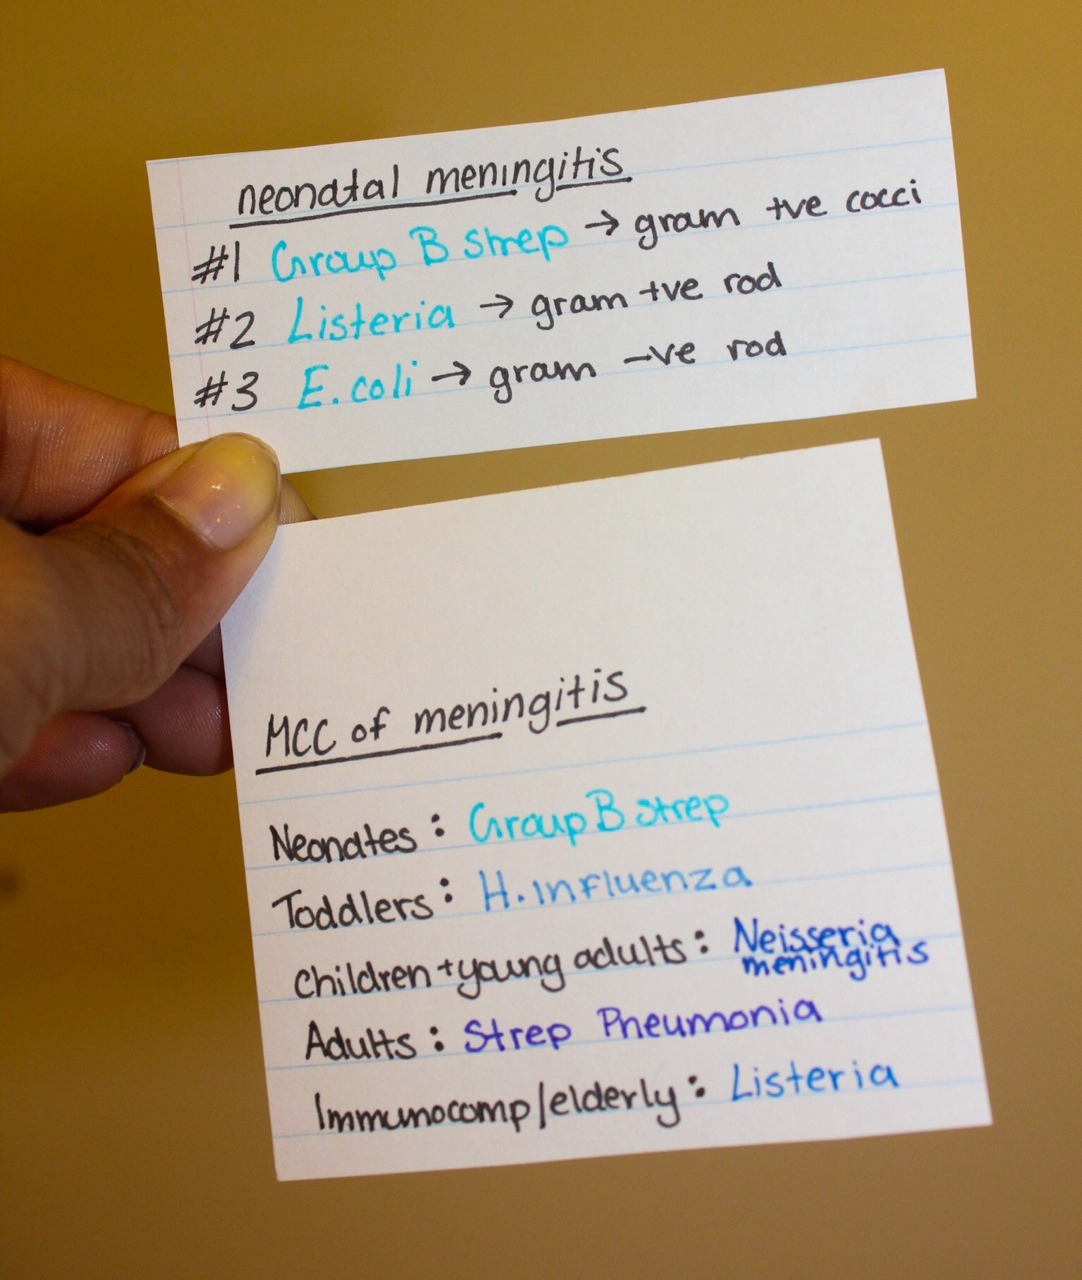 neonatal meningitis
#1 Group B strep → gram +ve cocci
#2 Listeria → gram +ve rod
#3 E.coli → gram -ve rod
MCC of meningitis
Neonates: Group B strep
Toddlers: H.influenza
children+young adults: Neisseria
meningitis
Adults: Strep Pneumonia
Immunocomp/elderly: Listeria